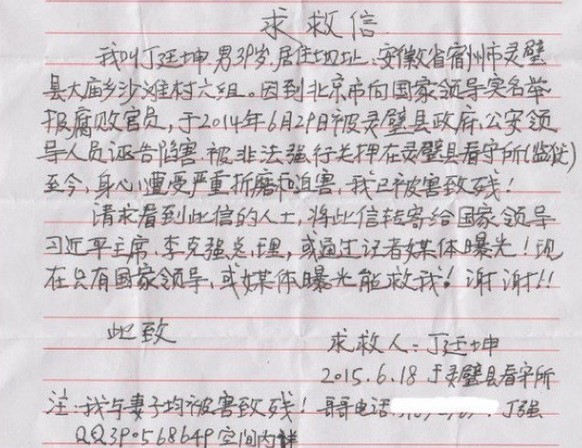 求救信
我叫丁廷坤男39岁,居住地址,安徽省宿州市灵璧
县大庙乡沙滩村六组。因到北京市向国家领导实名举
报腐败官员,于2014年6月29日被灵璧县政府、公安领
导人员诬告陷害.被非法强行关押在灵璧县看守所(监狱)
至今,身心遭受严重折磨和迫害,我已被害致残!
请求看到此信的人士,将此信转寄给国家领导
习近平主席、李克强总理,或通过记者媒体曝光!现
在只有国家领导,或媒体曝光能救我!谢谢!!
此致
求救人:丁廷坤
2015.6.18于灵璧县看守所
注:我与妻子均被害致残!哥哥电话 丁强
QQ390568649空间内详